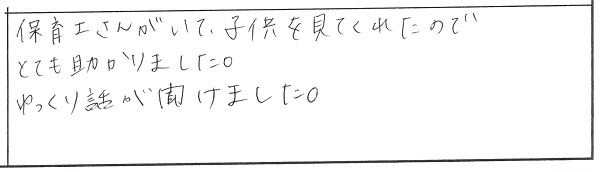 保育士さんがいて、子供を見てくれたので
とても助かりました。
ゆっくり話が聞けました。